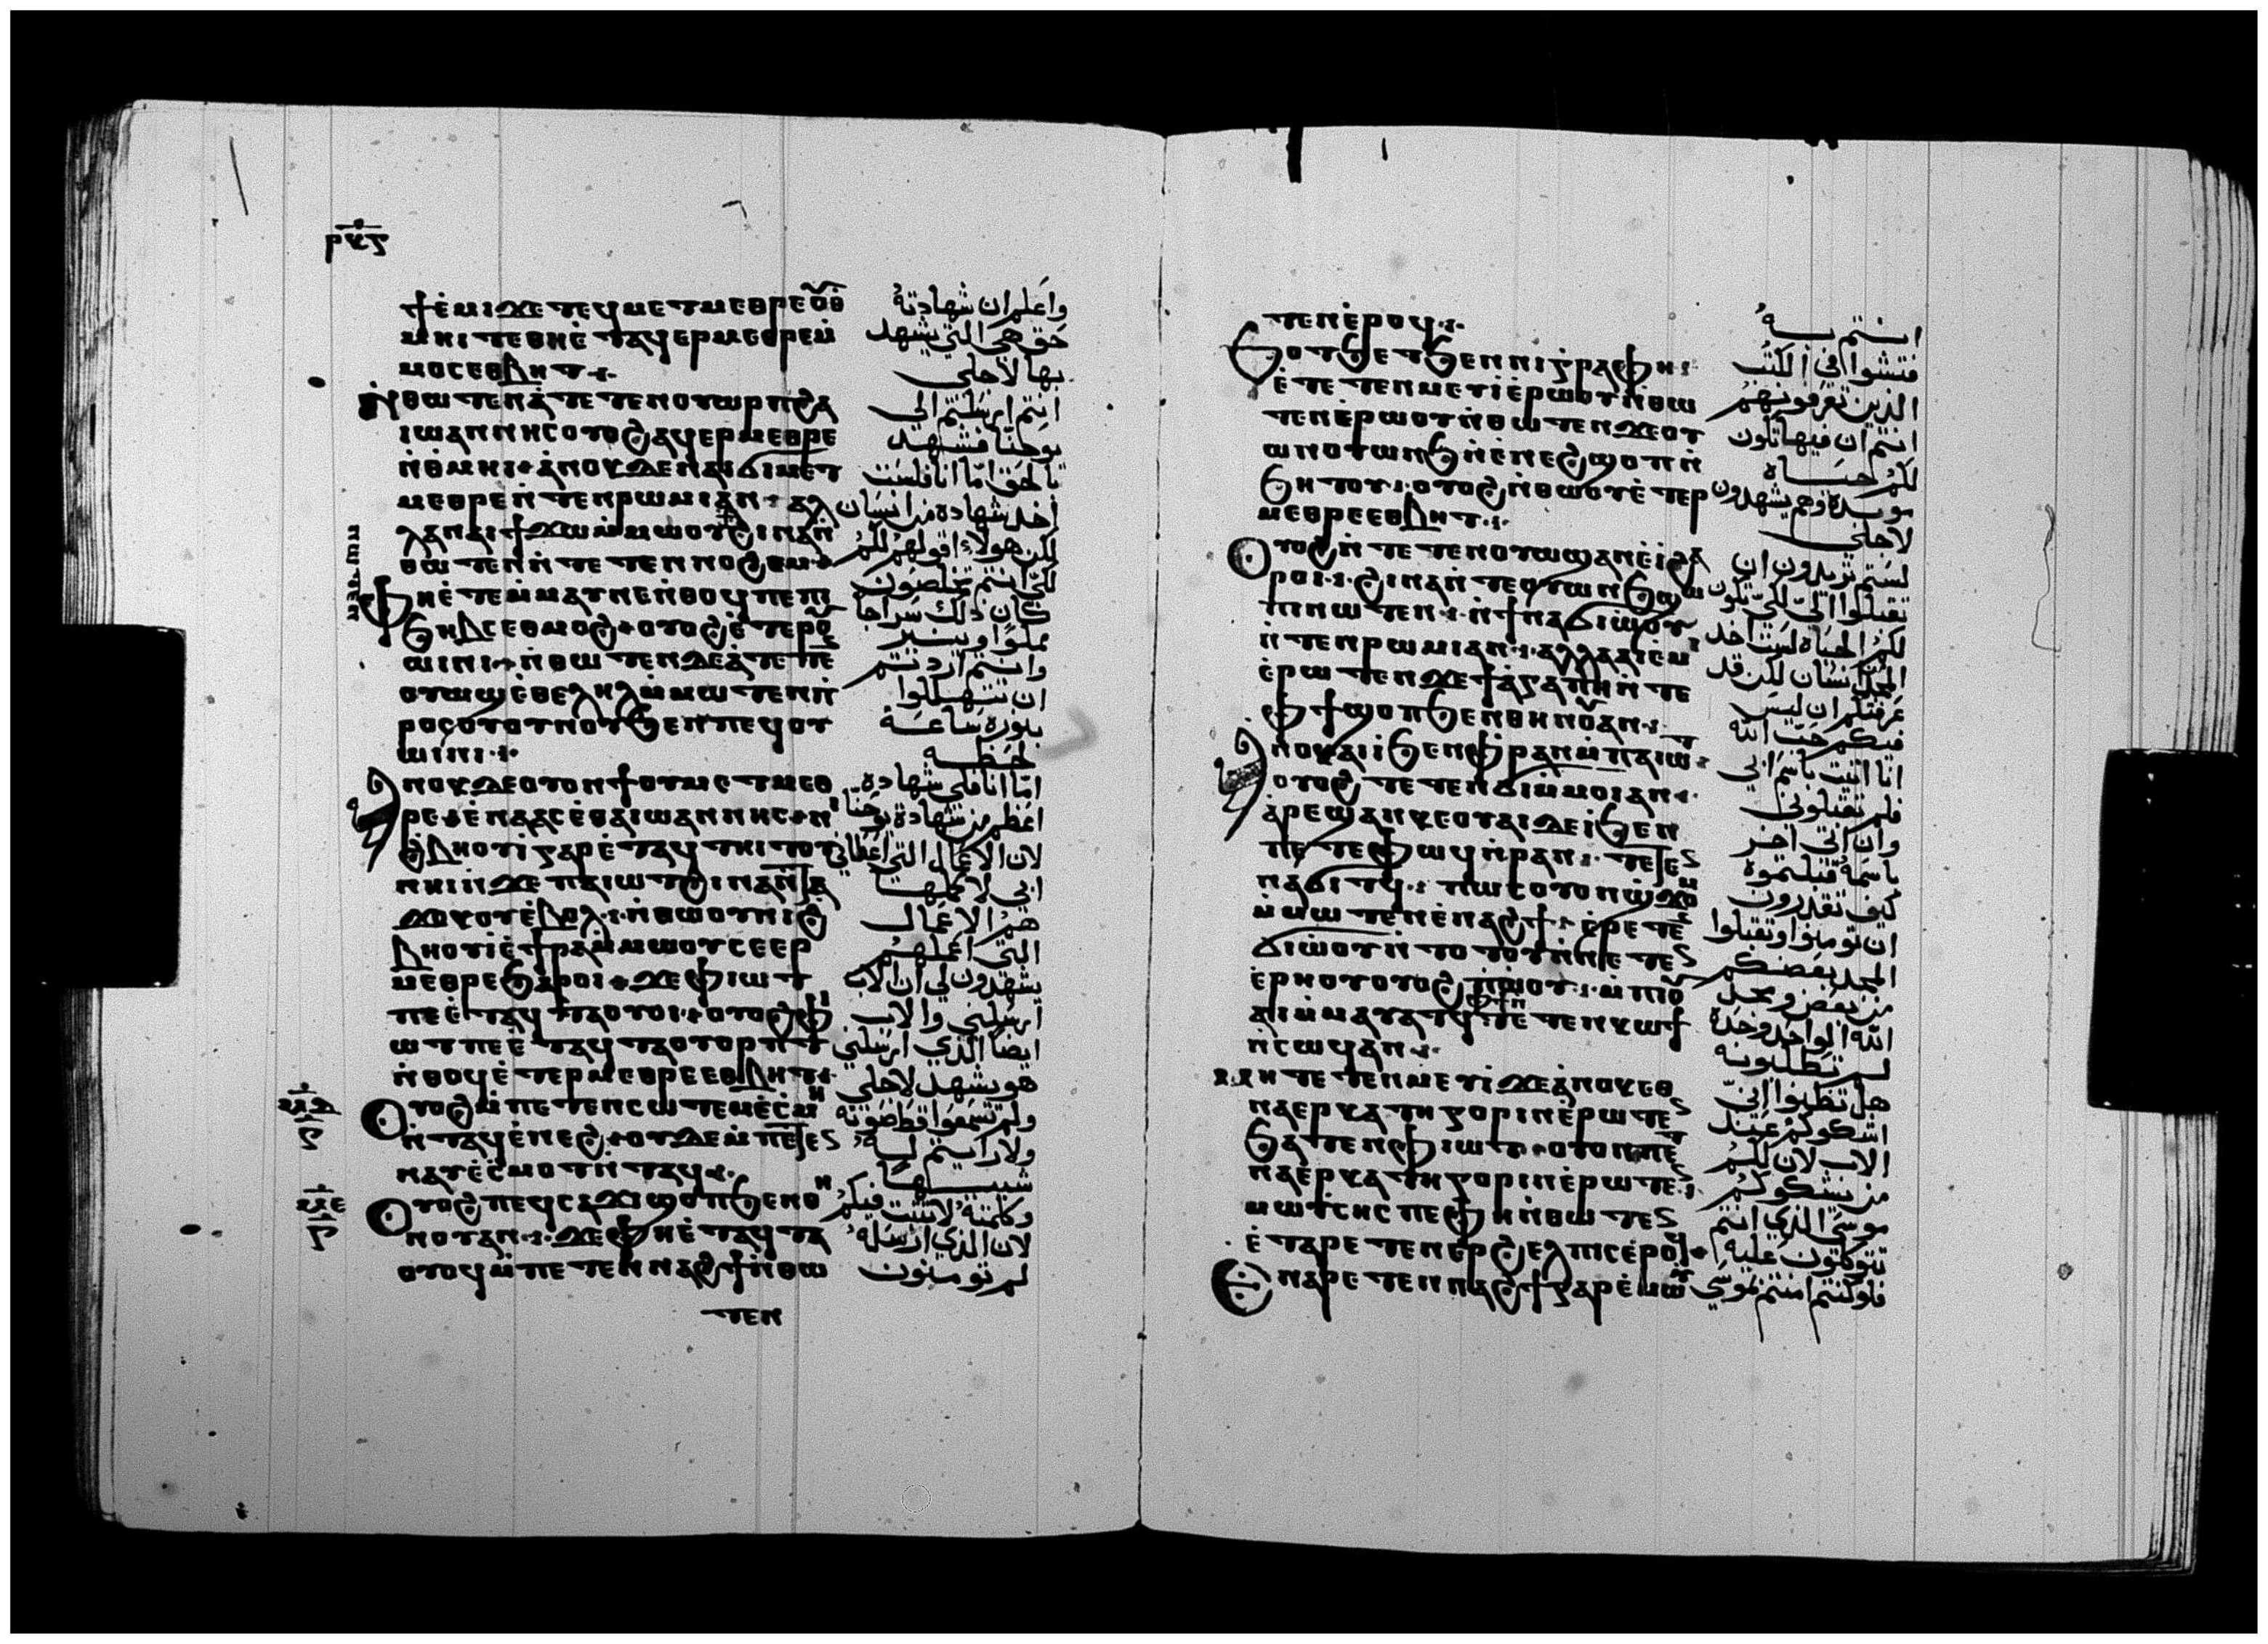 ⲣⲕⲋ
ϯⲉ̀ⲙⲓ ϫⲉ ⲧⲉϥⲙⲉⲧⲙⲉⲑⲣⲉ ⲟⲩⲑ
ⲙⲏⲓ ⲧⲉ ⲑⲏⲉ̀ⲧⲁϥⲉⲣⲙⲉⲑⲣⲉ ⲙ̀
ⲙⲟⲥ ⲉⲑⲃⲏⲧ
ⲛ̀ⲑⲱⲧⲉⲛ ⲁ̀ⲧⲉⲧⲉⲛⲟⲩⲱⲣⲡ ϩⲁ
ⲓⲱⲁⲛⲛⲏⲥ ⲟⲩⲟϩ ⲁϥⲉⲣⲙⲉⲑⲣⲉ
ⲛ̀ⲑⲙⲏⲓ ⲁ̀ⲛⲟⲕ ⲇⲉ ⲛⲁⲓϭⲓ ⲙⲉⲧ
ⲙⲉⲑⲣⲉ ⲛ̀ⲧⲉⲛ ⲣⲱⲙⲓ ⲁⲛ ⲁⲗ
ⲗⲁ ⲛⲁⲓ ϯϫⲱ ⲙ̀ⲙⲱⲟⲩ ϩⲓⲛⲁ ⲛ̀
ⲑⲱⲧⲉⲛ ⲛ̀ⲧⲉⲧⲉⲛⲛⲟϩⲉⲙ
ⲫⲏⲉ̀ⲧⲉⲙⲙⲁⲩ ⲛⲉ ⲛ̀ⲑⲟϥ ⲡⲉ ⲡⲓ
ϧⲏⲃⲥ ⲉⲑⲙⲟϩ ⲟⲩⲟϩ ⲉ̀ⲧⲉⲣⲟⲩ
ⲱⲓⲛⲓ ⲛ̀ⲑⲱⲧⲉⲛ ⲇⲉ ⲁ̀ⲧⲉⲧⲉⲛ
ⲟⲩⲱϣ ⲉ̀ⲑⲉⲗⲏⲗ ⲙ̀ⲙⲱⲧⲉⲛ ⲛ̀
ⲣⲟⲥ ⲟⲩⲟⲩⲛⲟⲩ ϧⲉⲛ ⲡⲉϥⲟⲩ
ⲱⲓⲛⲓ
ⲁⲛⲟⲕ ⲇⲉ ⲟⲩⲟⲛϯ ⲟⲩⲙⲉⲧⲙⲉⲑ
ⲣⲉ ⲉⲛⲁⲁⲥ ⲉ̀ⲑⲁ ⲓⲱⲁⲛⲛⲏⲥ ⲛⲓ
ϩⲃⲏⲟⲩⲓ̀ ⲅⲁⲣ ⲉ̀ⲧⲁϥⲧⲏⲓⲧⲟⲩ
ⲛⲏⲓ ⲛ̀ϫⲉ ⲡⲁⲓⲱⲧ ϩⲓⲛⲁ ⲛ̀ⲧⲁ
ϫⲟⲕⲟⲩ ⲉ̀ⲃⲟⲗ ⲛ̀ⲑⲱⲟⲩ ⲛⲓϩ
ⲃⲏⲟⲩⲓ̀ ⲉ̀ϯⲣⲁ ⲙ̀ⲙⲱⲟⲩ ⲥⲉⲉⲣ
ⲙⲉⲑⲣⲉ ϧⲁⲣⲟⲓ ϫⲉ ⲫⲓⲱⲧ
ⲡⲉ ⲉ̀ⲧⲁϥⲧⲁⲟⲩⲟⲓ ⲟⲩⲟϩ ⲫⲓ
ⲱⲧ ⲡⲉ ⲉ̀ⲧⲁϥⲧⲁⲟⲩⲟⲣⲡⲧ
ⲛ̀ⲑⲟϥ ⲉ̀ⲧⲉⲣⲙⲉⲑⲣⲉ ⲉⲑⲃⲏⲧ
ⲟⲩⲟϩ ⲙ̀ⲡⲉⲧⲉⲛⲥⲱⲧⲉⲙ ⲉ̀ⲥⲙⲏ
ⲛ̀ⲧⲁϥ ⲉ̀ⲛⲉϩ ⲟⲩⲇⲉ ⲙ̀ⲡⲉⲧⲉⲛ
ⲛⲁⲩ ⲉ̀ⲥⲙⲟⲧ ⲛ̀ⲧⲁϥ
ⲟⲩⲟϩ ⲡⲉϥⲥⲁϫⲓ ϣⲟⲡ ϧⲉⲛ ⲑⲏ
ⲛⲟⲩ ⲁⲛ ϫⲉ ⲫⲏⲉ̀ⲧⲁϥⲧⲁ
ⲟⲩⲟϥ ⲙ̀ⲡⲉⲧⲉⲛⲛⲁϩϯ ⲛ̀ⲑⲱ
ⲧⲉⲛ
واعلم ان شهادته
حق هي التي يشهد
بها لاجلي
انتم ارسلتم الى
يوحنا فشهد
بالحق اما انا فلست
اخذ شهادة من انسان
لكن هولاء اقولهم لكم
لكي انتم تخلصون
كان ذلك سراجا
مملوا وينير
وانتم اردتم
ان تتهللوا
بنوره ساعة
لحظه
اما انا فلي شهادة
اعظم من شهادة يوحنا
لان الاعمال التي اعطاني
ابي لاكملها
هم الاعمال
التي اعملهم
يشهدون لي ان الاب
ارسلني والاب
ايضا الذي ارسلني
هو يشهد لاجلي
ولم تسمعوا قط صوته
ولا رايتم له
شبها
وكلمته لا تثبت فيكم
لان الذي ارسله
لم تومنون
ⲧⲉⲛ ⲉ̀ⲣⲟϥ
ϧⲟⲧϧⲉⲧ ϧⲉⲛ ⲛⲓⲅⲣⲁⲫⲏ
ⲉ̀ⲧⲉⲧⲉⲛⲙⲉⲩⲓ̀ ⲉ̀ⲣⲱⲟⲩ ⲛ̀ⲑⲱ
ⲧⲉⲛ ⲉ̀ⲣⲱⲟⲩ ⲛ̀ⲑⲱⲧⲉⲛ ϫⲉ ⲟⲩ
ⲱⲛⲟⲩⲱⲛϧ ⲛ̀ⲉⲛⲉϩ ϣⲟⲡ ⲛ̀
ϧⲏⲧⲟⲩ ⲟⲩⲟϩ ⲛ̀ⲑⲱⲟⲩ ⲉ̀ⲧⲉⲣ
ⲙⲉⲑⲣⲉ ⲉⲑⲃⲏⲧ
ⲟⲩⲟϩ ⲛ̀ⲧⲉⲧⲉⲛⲟⲩⲱϣ ⲁⲛ ⲉ̀ⲓ̀ ϩⲁ
ⲣⲟⲓ ϩⲓⲛⲁ ⲛ̀ⲧⲉ ⲟⲩⲱⲛϧ ϣⲱ
ⲡⲓ ⲛⲱⲧⲉⲛ ⲛ̀ϯⲛⲁϭⲓ ⲱ̀ⲟⲩ
ⲛ̀ⲧⲉⲛ ⲣⲱⲙⲓ ⲁⲛ ⲁⲗⲗⲁ ⲁⲓⲉ̀ⲙⲓ
ⲉ̀ⲣⲱⲧⲉⲛ ϫⲉ ϯⲁ̀ⲅⲁⲡⲏ ⲛ̀ⲧⲉ
ⲫϯ ϣⲟⲡ ϧⲉⲛ ⲑⲏⲛⲟⲩ ⲁⲛ
ⲁⲛⲟⲕ ⲁⲓⲓ̀ ϧⲉⲛ ⲫⲣⲁⲛ ⲙ̀ⲡⲁⲓⲱⲧ
ⲟⲩⲟϩ ⲧⲉⲧⲉⲛϭⲓ ⲙ̀ⲙⲟⲓ ⲁⲛ
ⲁ̀ⲣⲉϣⲁⲛ ⲕⲉⲟⲩⲁⲓ ⲇⲉ ⲓ̀ ϧⲉⲛ
ⲡⲉⲧⲉⲫⲱϥ ⲛ̀ⲣⲁⲛ ⲧⲉⲧⲉⲛ
ⲛⲁϭⲓⲧϥ ⲡⲱⲥ ⲟⲩⲟⲛ ϣϫⲟⲙ
ⲙ̀ⲙⲱⲧⲉⲛ ⲉ̀ⲛⲁϩϯ ⲉ̀ⲣⲉⲧⲉⲛ
ϭⲓ ⲱ̀ⲟⲩ ⲛ̀ⲧⲟⲧⲟⲩ ⲛ̀ⲛⲉⲧⲉⲛ
ⲉ̀ⲣⲏⲟⲩ ⲟⲩⲟϩ ⲡⲓⲱ̀ⲟⲩ ⲙ̀ⲡⲓⲟⲩ
ⲁⲓ ⲙ̀ⲙⲁⲩⲁⲧϥ ⲫϯ ⲛ̀ⲧⲉⲧⲉⲛⲕⲱϯ
ⲛ̀ⲥⲱϥ ⲁⲛ
ⲙⲏ ⲧⲉⲧⲉⲛⲙⲉⲩⲓ̀ ϫⲉ ⲁ̀ⲛⲟⲕ ⲉⲑ
ⲛⲁⲉⲣⲕⲁⲧⲏⲅⲟⲣⲓⲛ ⲉ̀ⲣⲱⲧⲉⲛ
ϧⲁⲧⲉⲛ ⲫⲓⲱⲧ ⲟⲩⲟⲛ ⲡⲉⲧ
ⲛⲁⲉ̀ⲣⲕⲁⲧⲏⲅⲟⲣⲓⲛ ⲉ̀ⲣⲱⲧⲉⲛ
ⲙⲱⲩ̀ⲥⲏⲥ ⲡⲉ ⲫⲏ ⲛ̀ⲑⲱⲧⲉⲛ
ⲉ̀ⲧⲁⲣⲉⲧⲉⲛⲉⲣϩⲉⲗⲡⲓⲥ ⲉ̀ⲣⲟϥ
ⲉⲛⲁⲣⲉⲧⲉⲛⲛⲁϩϯ ⲅⲁⲣ ⲉ̀ⲙⲱⲩ
انتم به
فتشوا في الكتب
الذين تعرفونهم
انتم ان فيها تكون
لكم حياة
موبدة وهم يشهدون
لاجلي
لستم تريدون ان
تقبلوا الي لكي تكون
لكم الحياة لست اخذ
المجد من انسان لكن قد
عرفتكم ان ليس
فيكم حب الله
انا اتيت باسم ابي
فلم تقبلوني
وان اتى اخر
باسمه قبلتموه
كيف تقدرون
ان تومنوا وتقبلوا
المجد بعضكم
من بعض ومجد
الله الواحد وحده
لم تطلبونه
هل تظنوا اني
اشكوكم عند
الاب لان لكم
من يشكوكم
موسى الذي انتم
تتوكلون عليه
فلو كنتم امنتم بموسي